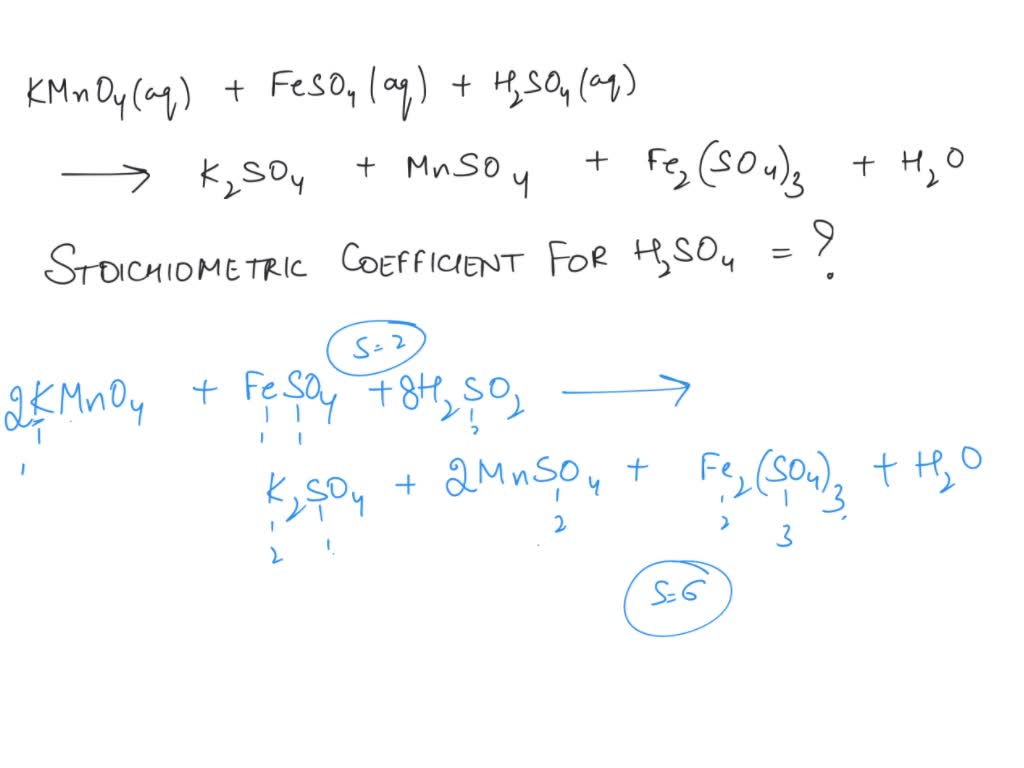 KMnO₄(aq) + FeSO₄(aq) + H₂SO₄(aq)
⟶ K₂SO₄ + MnSO₄ + Fe₂(SO₄)₃ + H₂O
STOICHIOMETRIC COEFFICIENT FOR H₂SO₄ = ?
S=2
2KMnO₄ + FeSO₄ + 8H₂SO₂ ⟶
1 1 1 2
K₂SO₄ + 2MnSO₄ + Fe₂(SO₄)₃ + H₂O
2 1 2 2 3
S=6